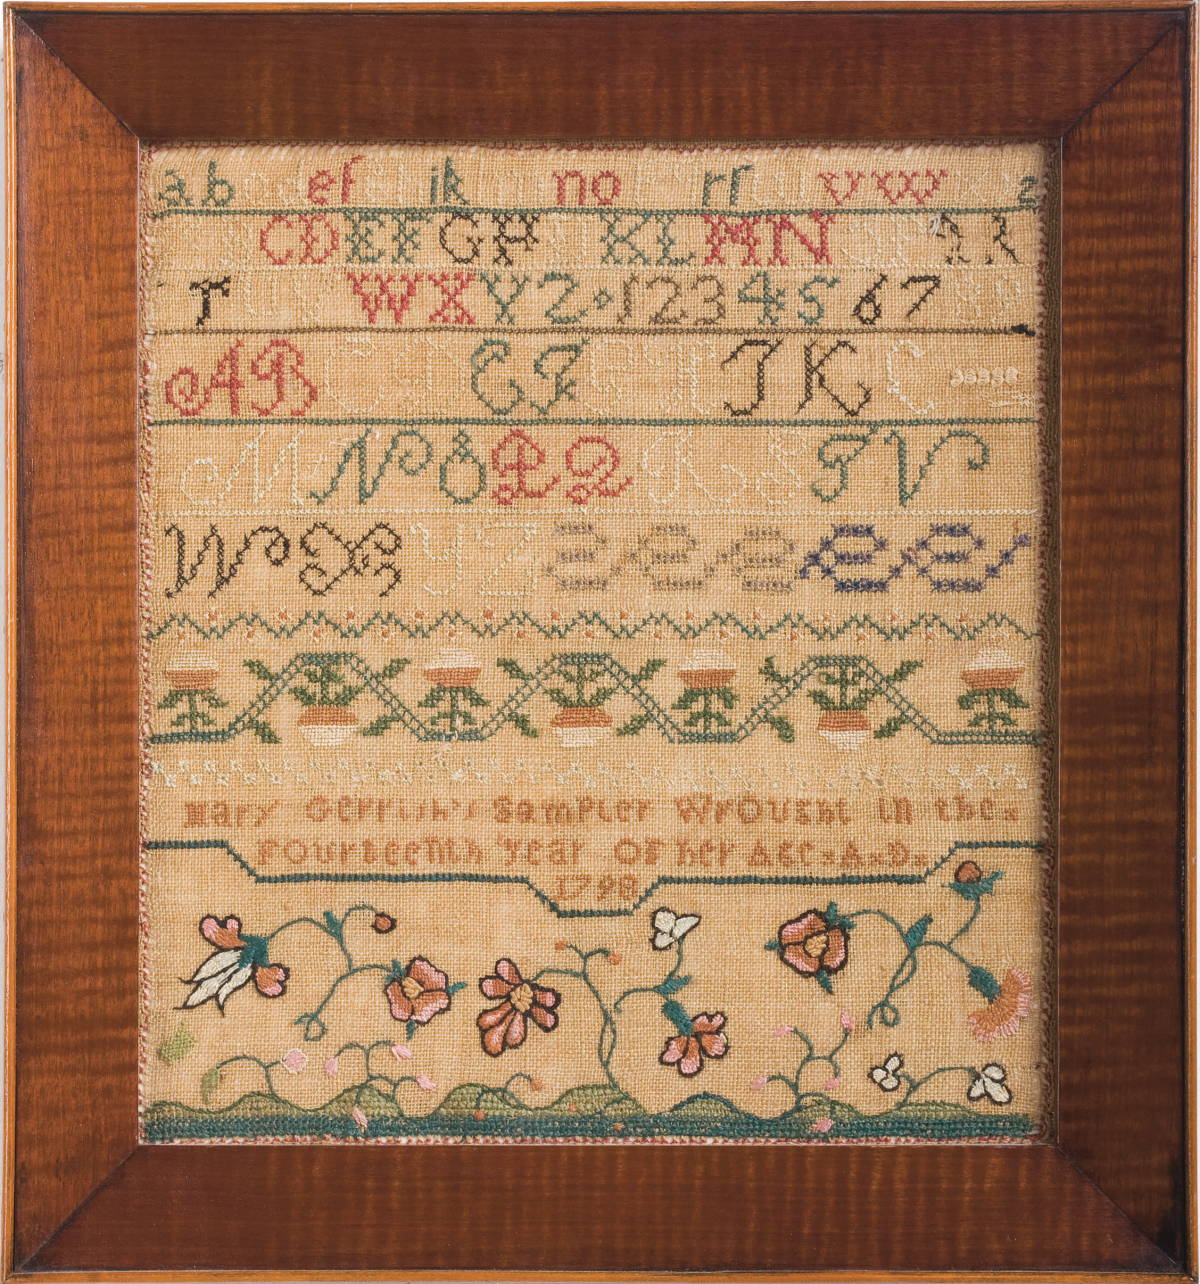 a b e f i k n o r r v w z
C D E F G H K L M N Q R
T W X Y Z 1 2 3 4 5 6 7
A B C D E F G H I K L
M N O P Q R S T V
W X Y Z
Mary Gerrish's Sampler Wrought in the
Fourteenth Year Of her Age A D
1798